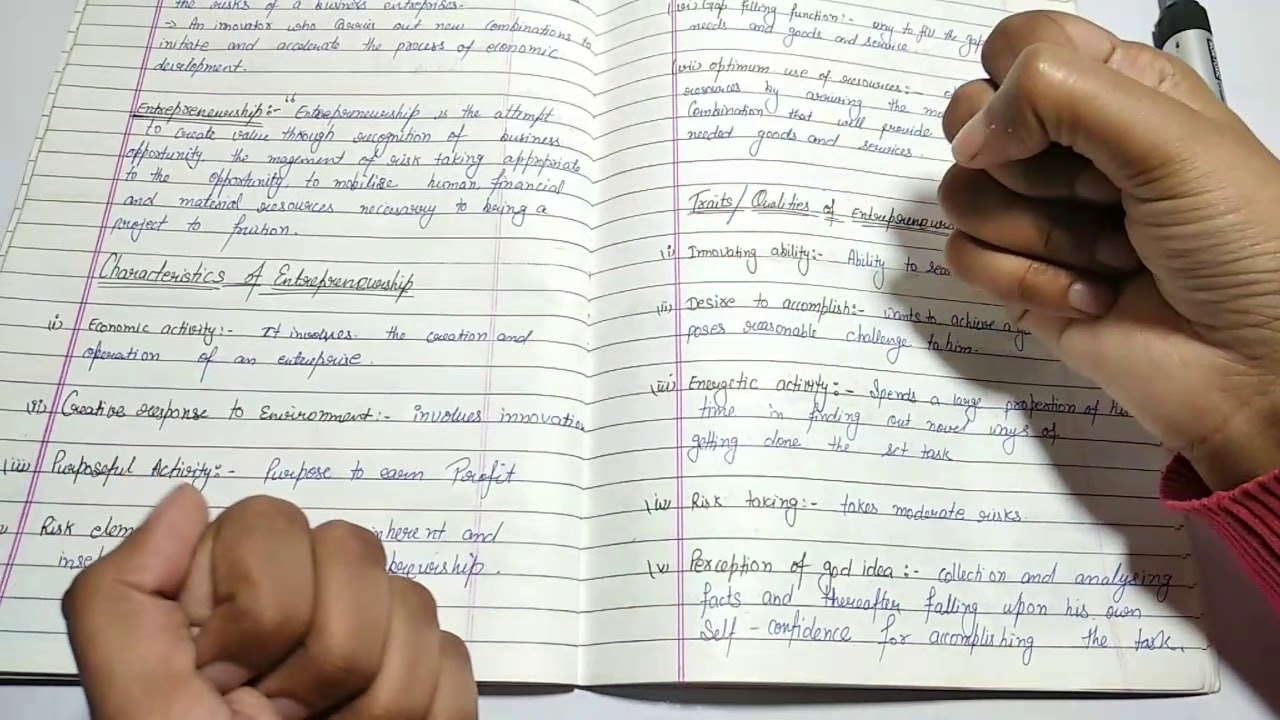 the risks of a business enterprises.
→ An innovator who carries out new combinations to
initiate and accelerate the process of economic
development.
Entrepreneurship:- "Entrepreneurship is the attempt
to create value through recognition of business
opportunity the magement of risk taking appropriate
to the opportunity, to mobilise human, financial
and material resources necessary to being a
project to fruition.
Characteristics of Entrepreneurship
i) Economic activity:- It involves the creation and
operation of an enterprise.
ii) Creative response to Environment:- involves innovation
iii) Purposeful Activity:- Purpose to earn Profit
Risk inherent and
vi) Gap filling function:- any to fill the gap
needs and goods and science
vii) optimum use of resources:-
resources by the
Combination that will provide
needed goods and services.
Traits/Qualities of
i) Innovating ability:- Ability to
ii) Desire to accomplish:- wants to achieve a
poses reasonable challenge to him.
iii) Energetic activity:- Spends a large propertion of his
time in finding out novel ways of
getting done the set task
iv) Risk taking:- takes moderate risks.
v) Perception of god idea:- collection and analysing
facts and thereafter falling upon his own
Self-confidence for accomplishing the task.